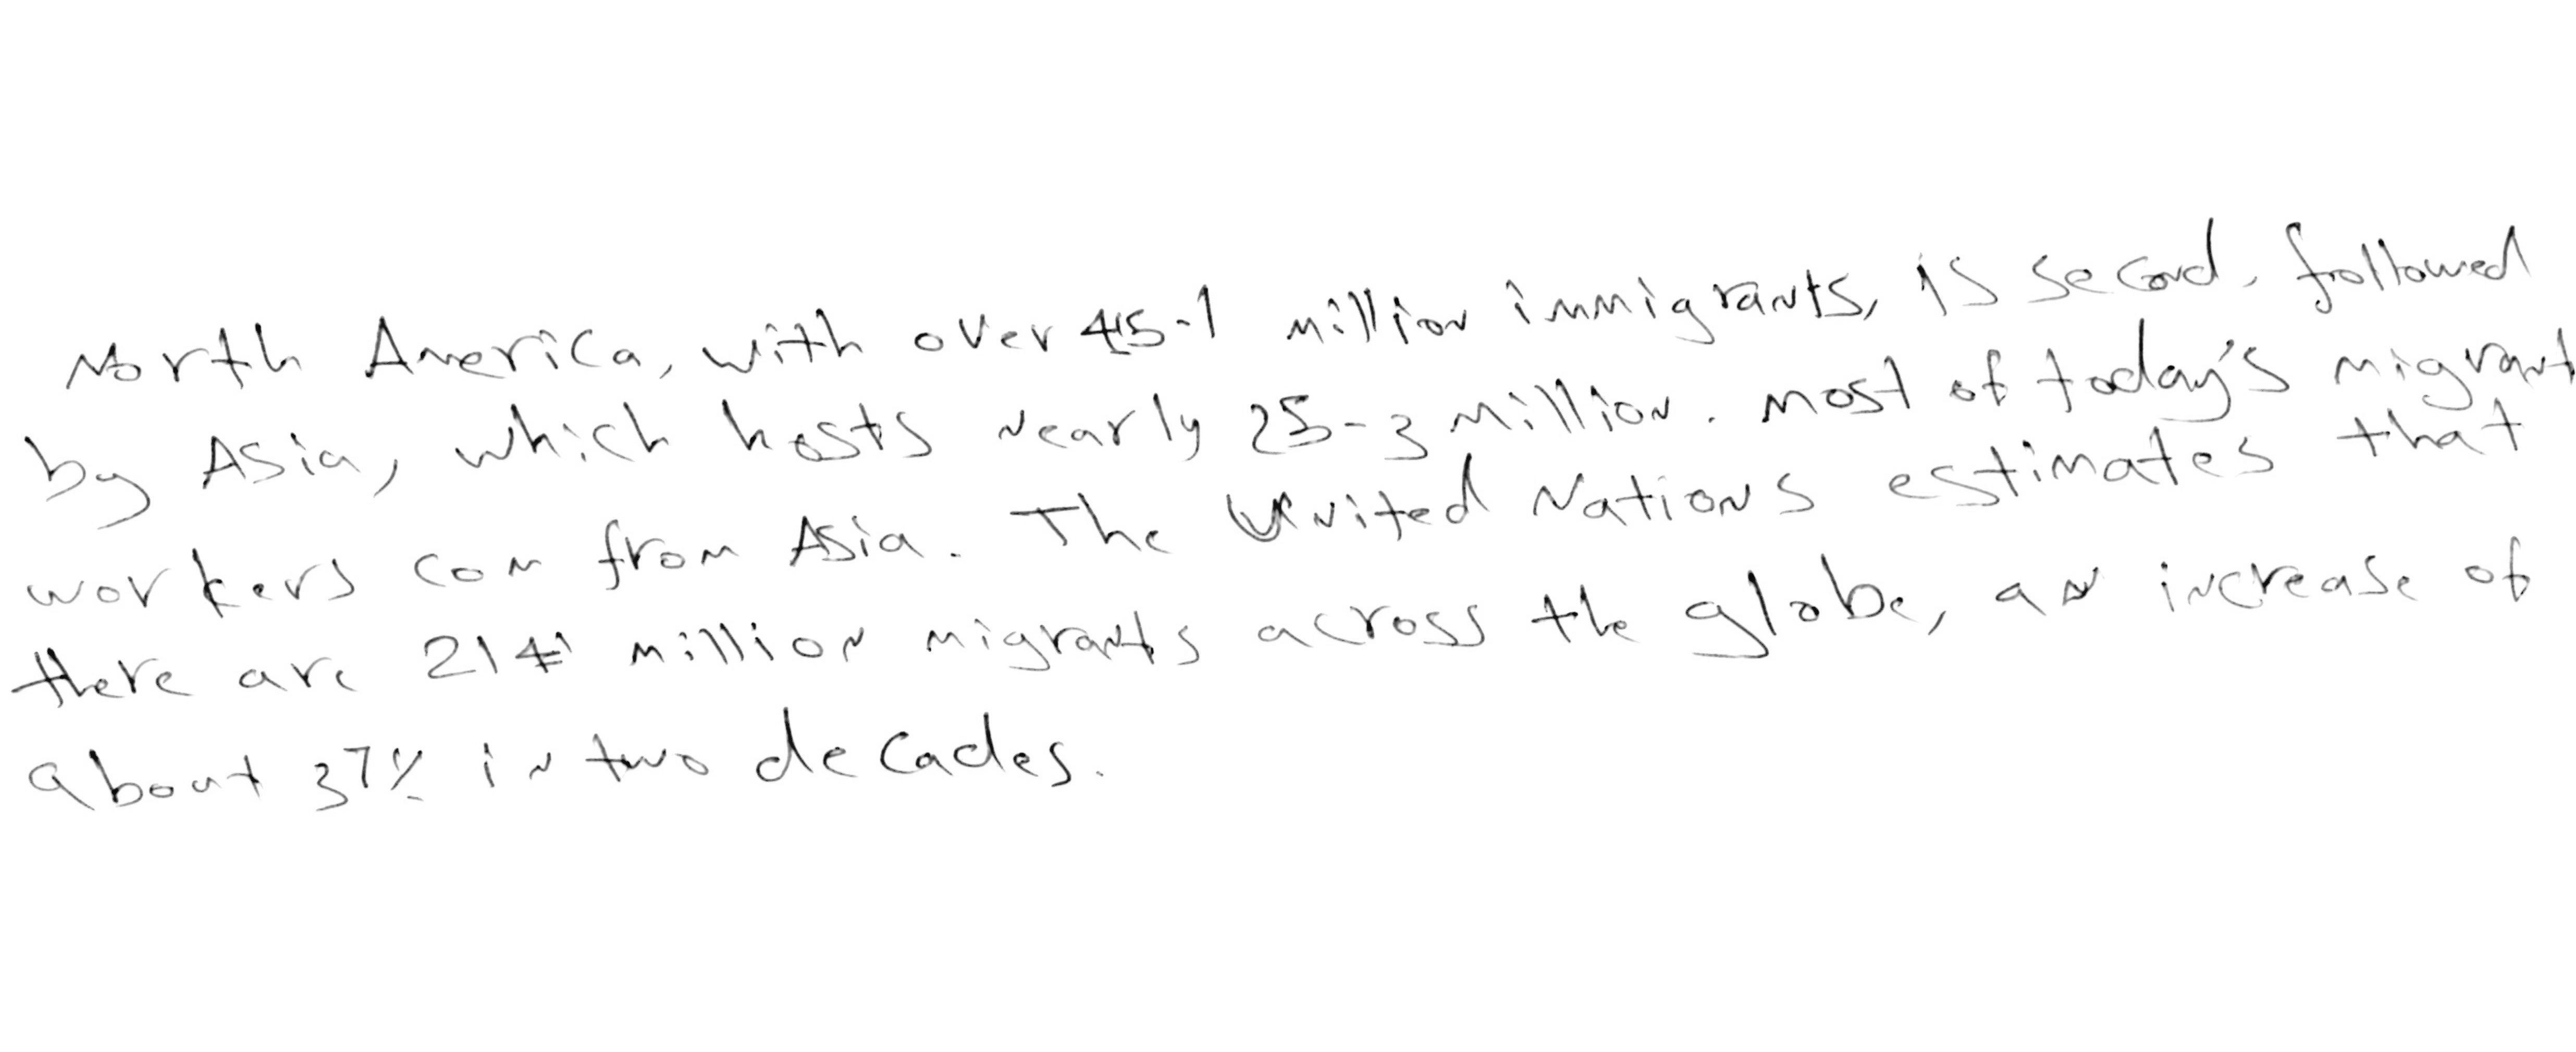 North America, with over 45-1 million immigrants, is second, followed
by Asia, which hosts nearly 25-3 million. most of today's migrant
workers com from Asia. The United Nations estimates that
there are 214 million migrants across the globe, an increase of
about 37% in two decades.